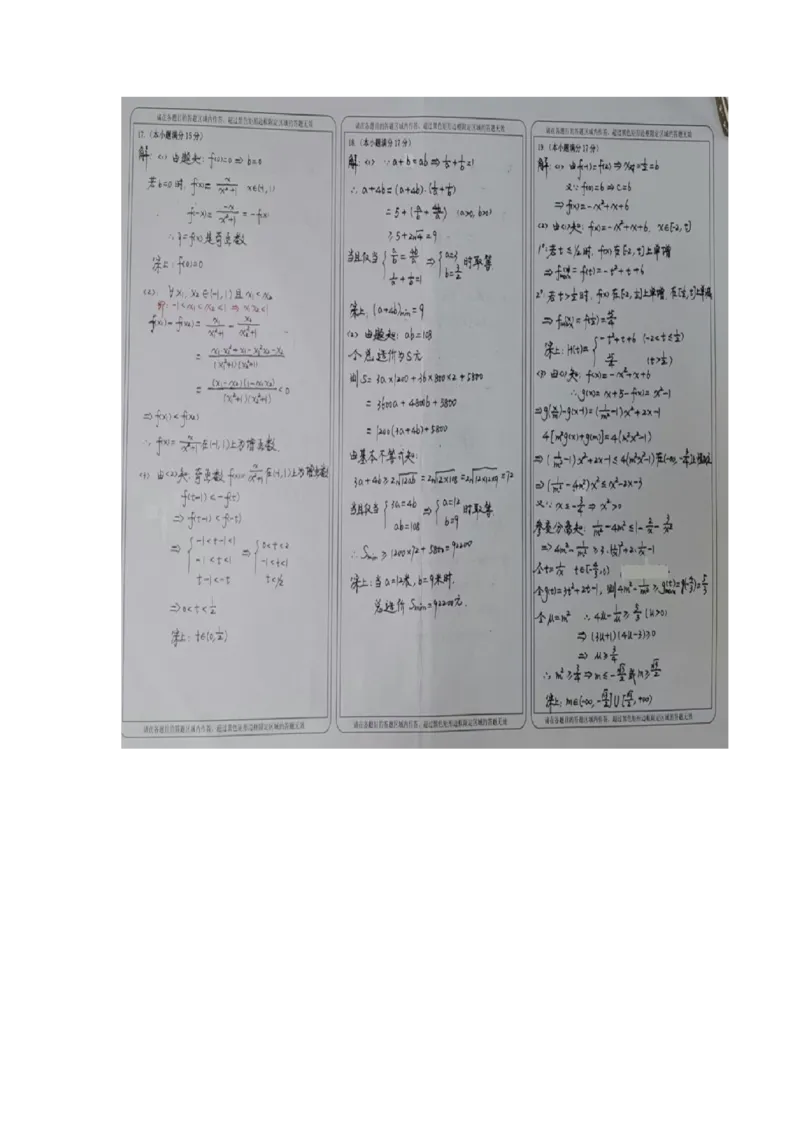 请在各题目的答题区域内作答,超过黑色矩形边框限定区域的答题无效
17.(本小题满分15分)
解: (1) 由题知: f(0)=0 ⇒ b=0
若b=0时, f(x)= x/(x²+1) x∈(-1,1)
f(-x)= -x/(x²+1) = -f(x)
∴ y=f(x)是奇函数
综上: f(0)=0
(2): ∀x₁, x₂∈(-1,1)且x₁<x₂
即: -1<x₁<x₂<1 ⇒ x₁x₂<1
f(x₁)-f(x₂)= x₁/(x₁²+1) - x₂/(x₂²+1)
= (x₁x₂²+x₁-x₁²x₂-x₂)/((x₁²+1)(x₂²+1))
= (x₁-x₂)(1-x₁x₂)/((x₁²+1)(x₂²+1)) <0
⇒ f(x₁)<f(x₂)
∴ f(x)= x/(x²+1) 在(-1,1)上为增函数.
(3) 由(2)知: 奇函数f(x)= x/(x²+1) 在(-1,1)上为增函数
f(t-1)<-f(t)
⇒ f(t-1)<f(-t)
⇒ { -1<t-1<1 ⇒ { 0<t<2
-1<t<1 -1<t<1
t-1<-t t<1/2
⇒ 0<t<1/2
综上: t∈(0,1/2)
请在各题目的答题区域内作答,超过黑色矩形边框限定区域的答题无效
请在各题目的答题区域内作答,超过黑色矩形边框限定区域的答题无效
18.(本小题满分17分)
解: (1) ∵ a+b=ab ⇒ 1/a+1/b=1
∴ a+4b=(a+4b)·(1/a+1/b)
=5+(a/b+4b/a) (a>0, b>0)
≥5+2√4=9
当且仅当 { a/b=4b/a ⇒ { a=3 时取等.
1/a+1/b=1 b=3/2
综上, (a+4b)min=9
(2) 由题知: ab=108
令总造价为S元
则S=3a×1200+3b×800×2+5800
=3600a+4800b+5800
=1200(3a+4b)+5800
由基本不等式知:
3a+4b≥2√12ab=2√12×108=2√12×12×9=72
当且仅当 { 3a=4b ⇒ { a=12 时取等.
ab=108 b=9
∴ Smin≥1200×72+5800=92200
综上: 当a=12米, b=9米时.
总造价Smin=92200元.
请在各题目的答题区域内作答,超过黑色矩形边框限定区域的答题无效
请在各题目的答题区域内作答,超过黑色矩形边框限定区域的答题无效
19.(本小题满分17分)
解: (1) 由f(-1)=f(2) ⇒ x对=1/2=b
又∵ f(0)=6 ⇒ c=6
⇒ f(x)=-x²+x+6
(2) 由(1)知: f(x)=-x²+x+6, x∈[-2,t]
1°: 若t≤1/2时, f(x)在[-2,t]上单增
⇒ f(x)max=f(t)=-t²+t+6
2°: 若t>1/2时, f(x)在[-2,1/2]上单增, 在[1/2,t]上单减
⇒ f(x)max=f(1/2)=25/4
综上: H(t)= { -t²+t+6 (-2<t≤1/2)
25/4 (t>1/2)
(3) 由(1)知: f(x)=-x²+x+6
∴ g(x)=x+5-f(x)=x²-1
⇒ g(x/m)-g(x-1)=(1/m²-1)x²+2x-1
4[m²g(x)+g(m)]=4(m²x²-1)
⇒ (1/m²-1)x²+2x-1≤4(m²x²-1)在(-∞,-3/4]上恒成立
⇒ (1/m²-4m²)x²≤x²-2x-3
又∵ x≤-3/4 ⇒ x²>0
参变分离知: 1/m²-4m²≤1-2/x-3/x²
⇒ 4m²-1/m²≥3·(1/x)²+2·1/x-1
令t=1/x t∈[-4/3,0)
令g(t)=3t²+2t-1, 则4m²-1/m²≥g(t)max=g(-4/3)=5/3
令μ=m² ∴ 4μ-1/μ≥5/3 (μ>0)
⇒ (3μ+1)(4μ-3)≥0
⇒ μ≥3/4
∴ m²≥3/4 ⇒ m≤-√3/2或m≥√3/2
综上: m∈(-∞,-√3/2]∪[√3/2,+∞)
请在各题目的答题区域内作答,超过黑色矩形边框限定区域的答题无效